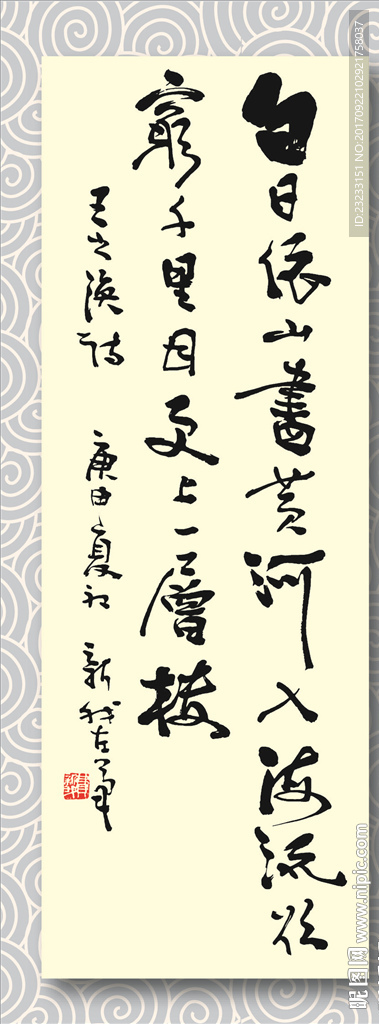 白日依山書黄河入海流欲
窮千里目更上一層楼
王之渙詩 庚申夏初 新
ID:23233151 NO:20170922102921758037
昵图网 www.nipic.com